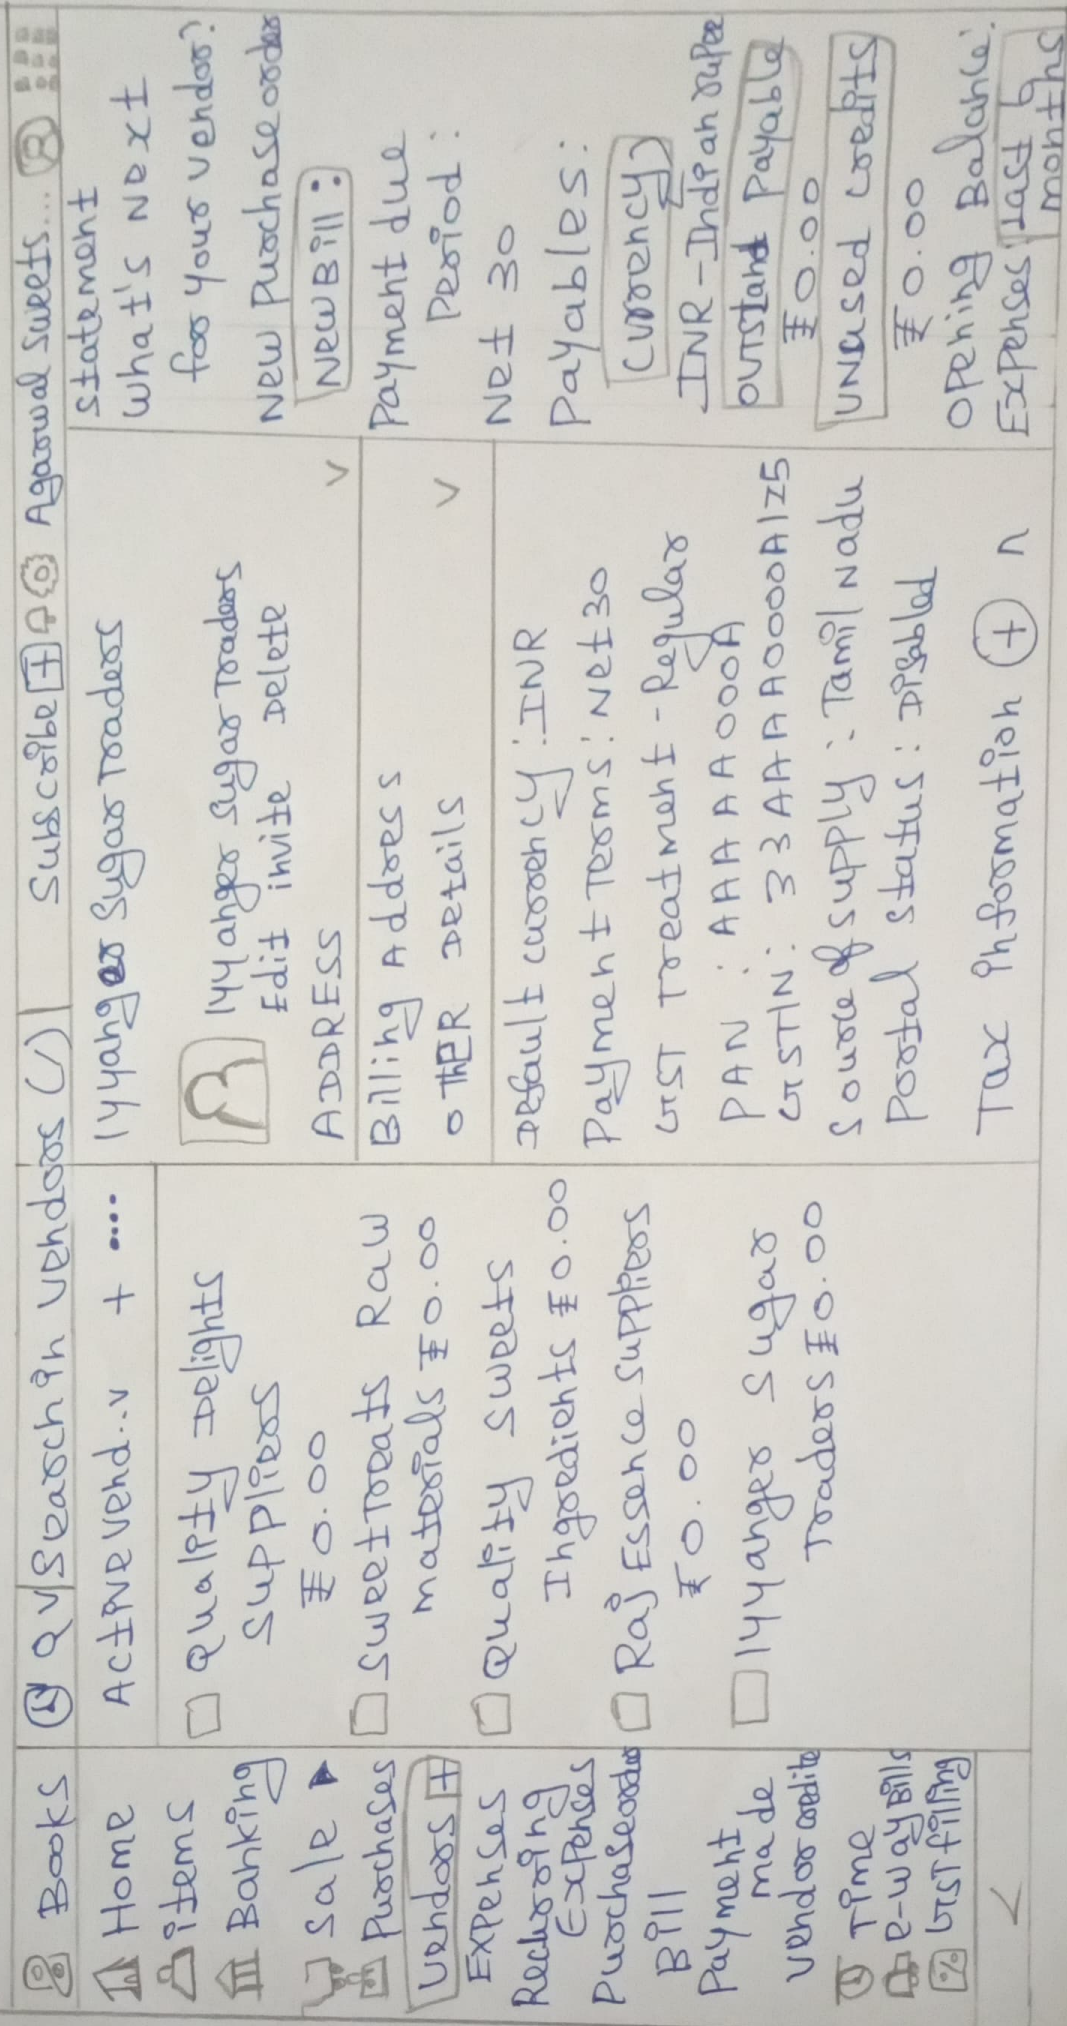 Books
Home
items
Banking
Sale
Purchases
Vendors +
Expenses
Recurring
Expenses
Purchaseorder
Bill
Payment
made
Vendor credite
Time
e-way Bills
GST filling
<
Q V Search in Vendors (/)
Subscribe + Agarwal Sweets...
Active vend. v + ....
Quality Delights
Suppliers
₹0.00
Sweet Treats Raw
materials ₹0.00
Quality Sweets
Ingredients ₹0.00
Raj Essence Suppliers
₹0.00
Iyyanger Sugar
Traders ₹0.00
Iyyanger Sugar Traders
Iyyanger Sugar Traders
Edit invite Delete
ADDRESS v
Billing Address
OTHER Details v
Default currency : INR
Payment Terms : Net 30
GST Treatment - Regular
PAN : AAAAA000A
GSTIN : 33AAAAA0000A1Z5
Source of supply : Tamil Nadu
Portal Status : Disabled
Tax information + ^
Statement
What's Next
for your vendor?
New Purchase order
New Bill :
Payment due
Period :
Net 30
Payables :
Currency
INR - Indian rupee
Outstand Payable
₹0.00
Unused credits
₹0.00
Opening Balance:
Expenses last 6
months